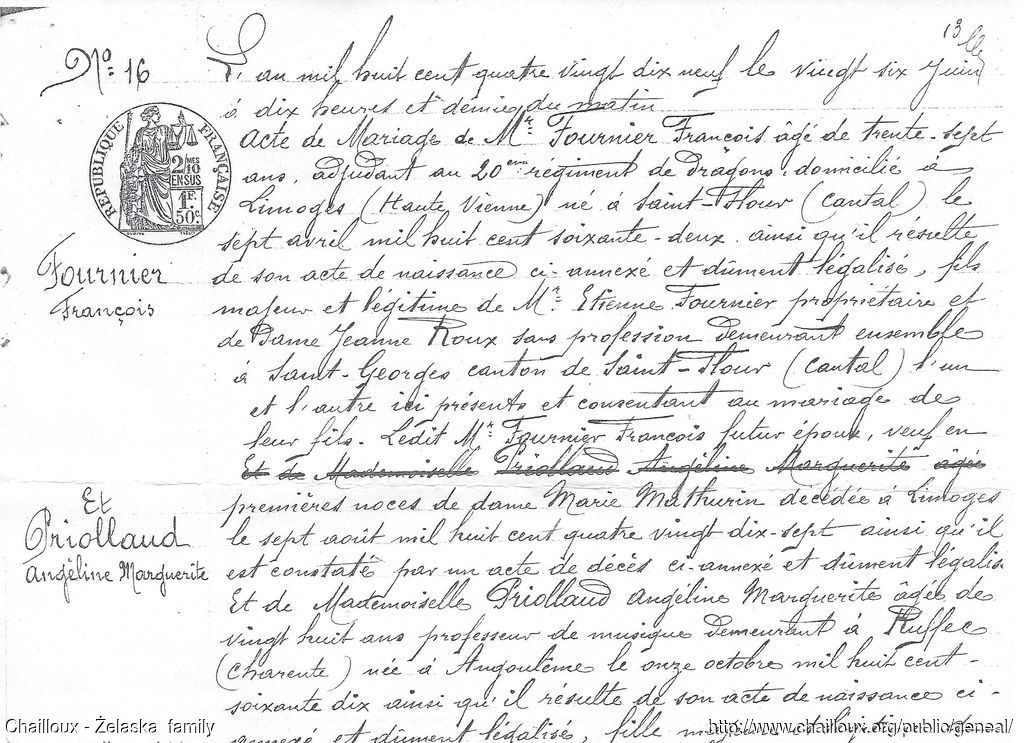 13
N° 16
L'an mil huit cent quatre vingt dix neuf le vingt six Juin
à dix heures et demie du matin
Acte de Mariage de Mr Fournier François âgé de trente-sept
ans, adjudant au 20eme régiment de Dragons, domicilié à
Limoges (Haute Vienne) né à Saint-Flour (Cantal) le
sept avril mil huit cent soixante-deux ainsi qu'il résulte
de son acte de naissance ci-annexé et dûment légalisé, fils
majeur et légitime de Mr Etienne Fournier propriétaire et
de Dame Jeanne Roux sans profession demeurant ensemble
à Saint-Georges canton de Saint-Flour (Cantal) l'un
et l'autre ici présents et consentant au mariage de
leur fils. Ledit Mr Fournier François futur époux, veuf en
Et de Mademoiselle Priollaud Angéline Marguerite âgée
premières noces de dame Marie Mathurin décédée à Limoges
le sept août mil huit cent quatre vingt dix-sept ainsi qu'il
est constaté par un acte de décès ci-annexé et dûment légalisé
Et de Mademoiselle Priollaud Angéline Marguerite âgée de
vingt huit ans professeur de musique demeurant à Ruffec
(Charente) née à Angoulême le onze octobre mil huit cent-
soixante dix ainsi qu'il résulte de son acte de naissance ci-
annexé et dûment légalisé, fille
RÉPUBLIQUE FRANÇAISE
2/10 MES
EN SUS
1 F.
50 c.
Fournier
François
Et
Priollaud
Angéline Marguerite
Chailloux - Żelaska family
http://www.chailloux.org/public/geneal/